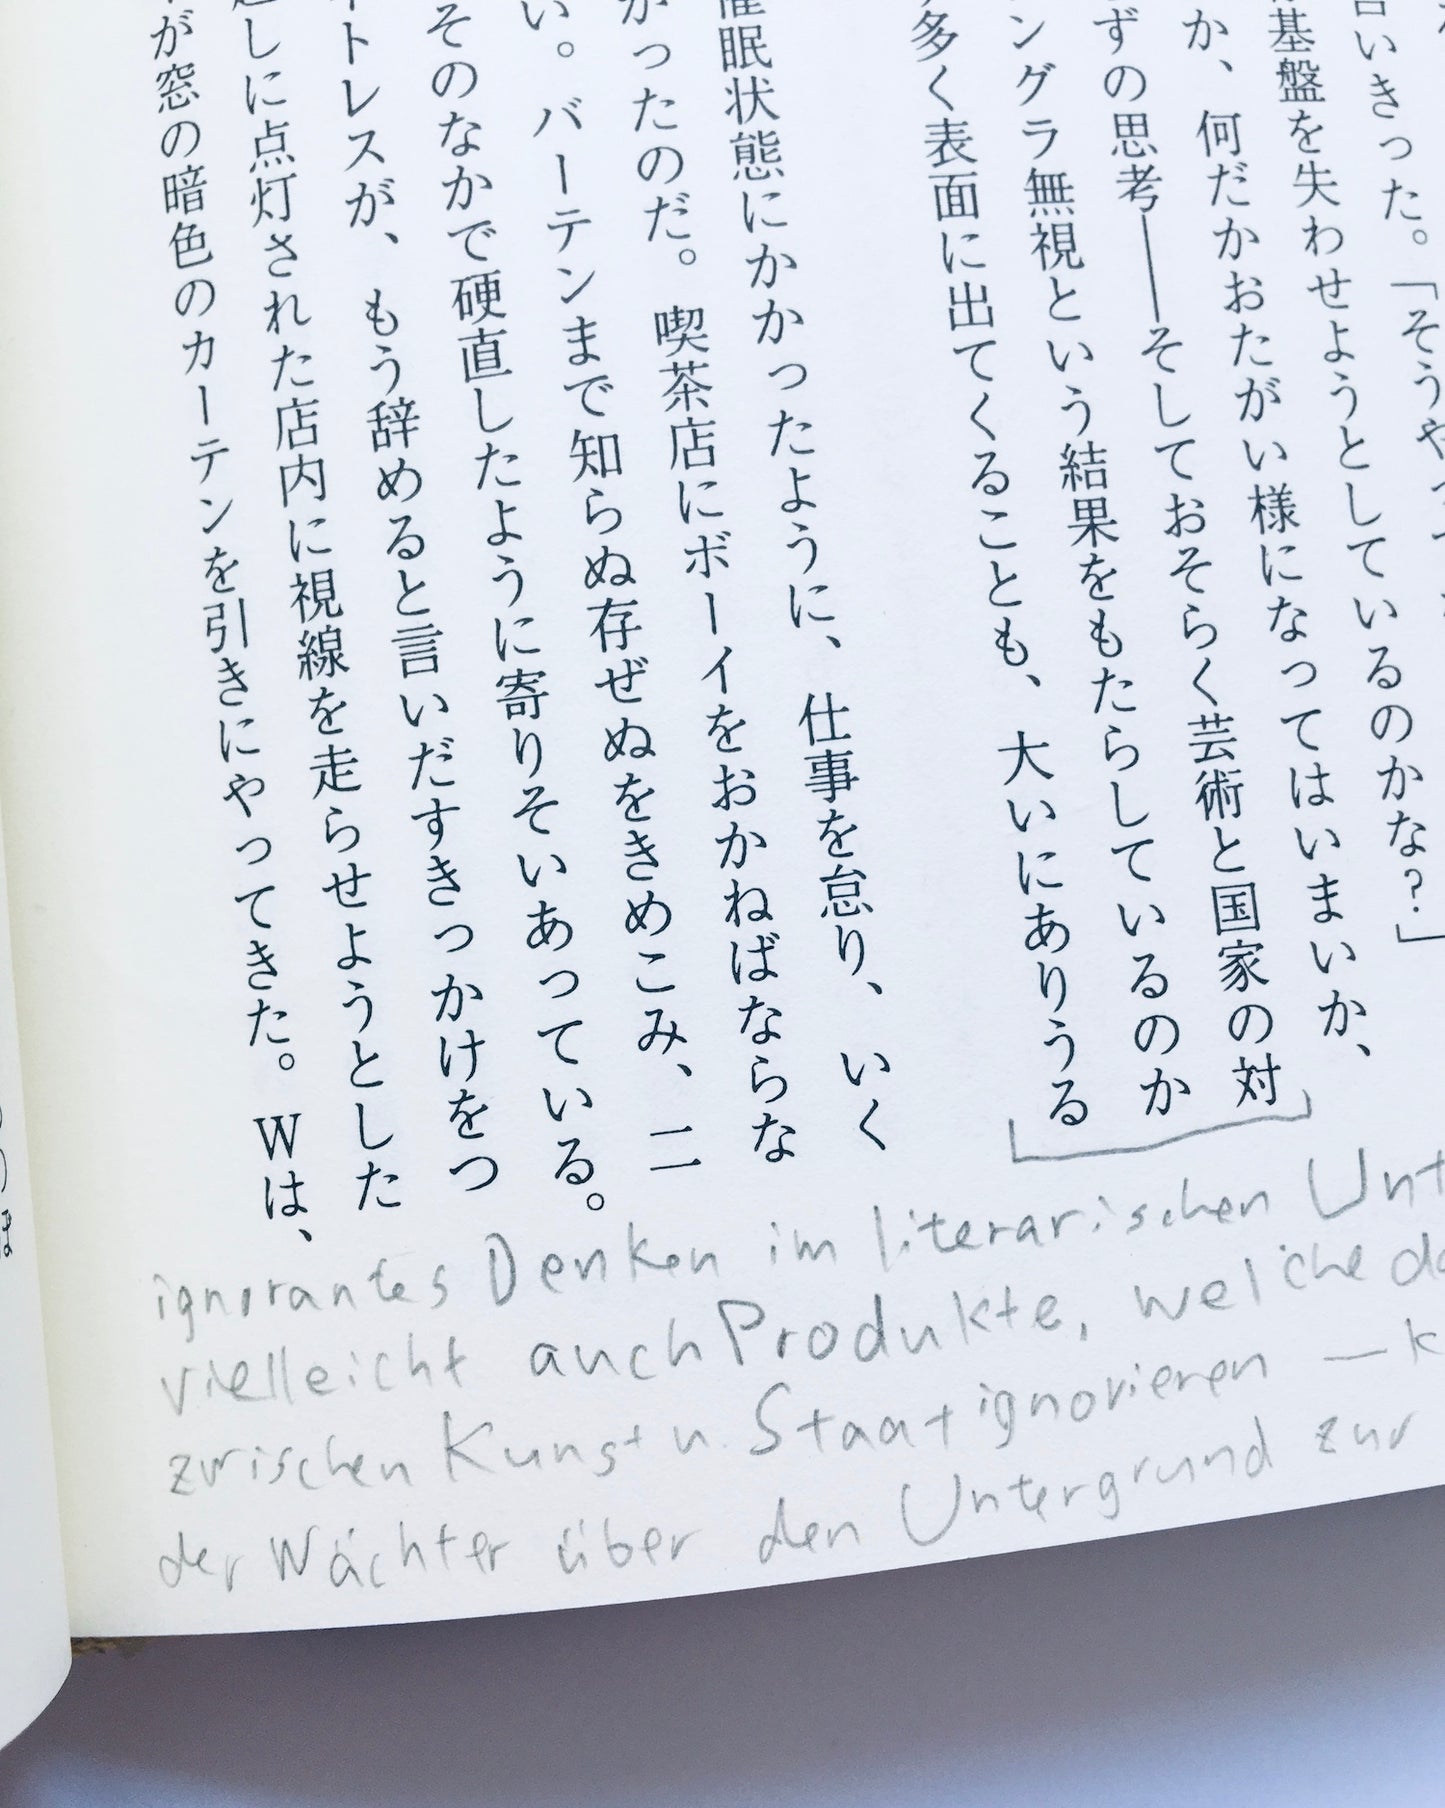 言いきった。「そうやっ
基盤を失わせようとしているのかな?」
か、何だかおたがい様になってはいまいか、
ずの思考——そしておそらく芸術と国家の対
ングラ無視という結果をもたらしているのか
多く表面に出てくることも、大いにありうる
催眠状態にかかったように、仕事を怠り、いく
かったのだ。喫茶店にボーイをおかねばならな
い。バーテンまで知らぬ存ぜぬをきめこみ、二
そのなかで硬直したように寄りそいあっている。
イトレスが、もう辞めると言いだすきっかけをつ
越しに点灯された店内に視線を走らせようとした
が窓の暗色のカーテンを引きにやってきた。Wは、
ignorantes Denken im literarischen Unt
vielleicht auch Produkte, welche da
zwischen Kunst u. Staat ignorieren — k
der Wächter über den Untergrund zur